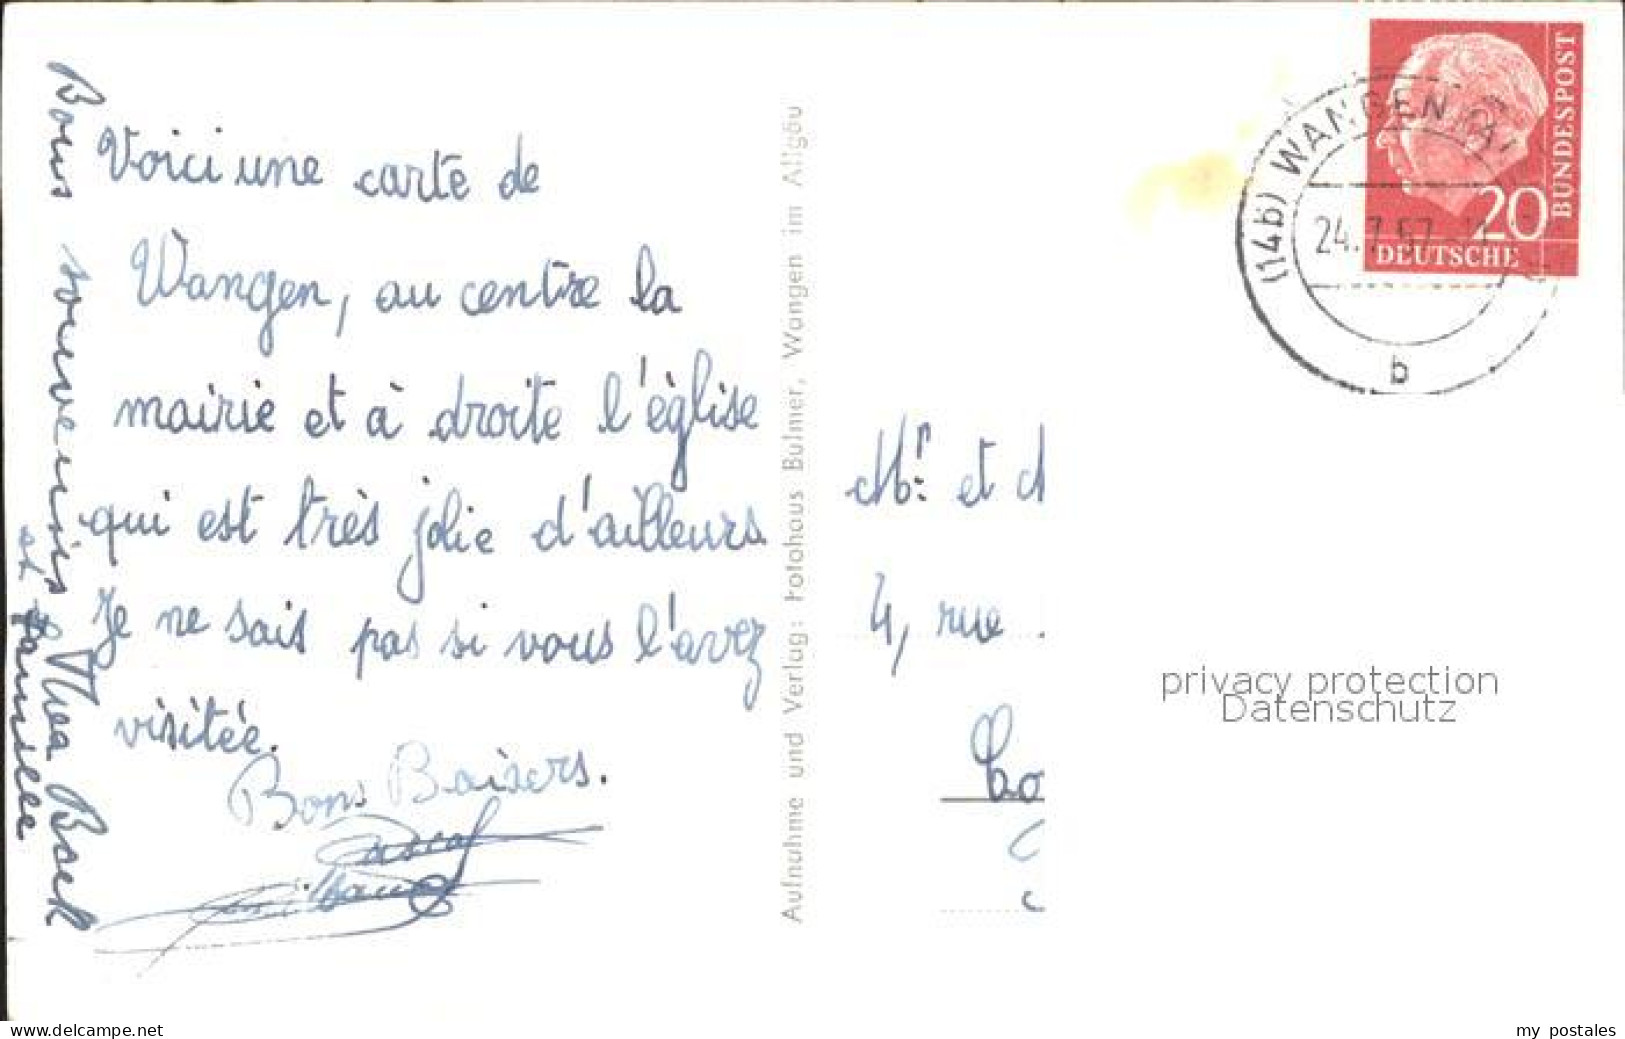 Voici une carte de
Wangen, au centre la
mairie et à droite l'église
qui est très jolie d'ailleurs.
Je ne sais pas si vous l'avez
visitée.
Bons Baisers.
Pascal
Bons souvenirs Thea Bock
et famille
Aufnahme und Verlag: Fotohaus Bulmer, Wangen im Allgäu
(14b) WANGEN
24.7.57
b
20
DEUTSCHE
BUNDESPOST
Mr. et
4, rue
privacy protection
Datenschutz
www.delcampe.net
my postales